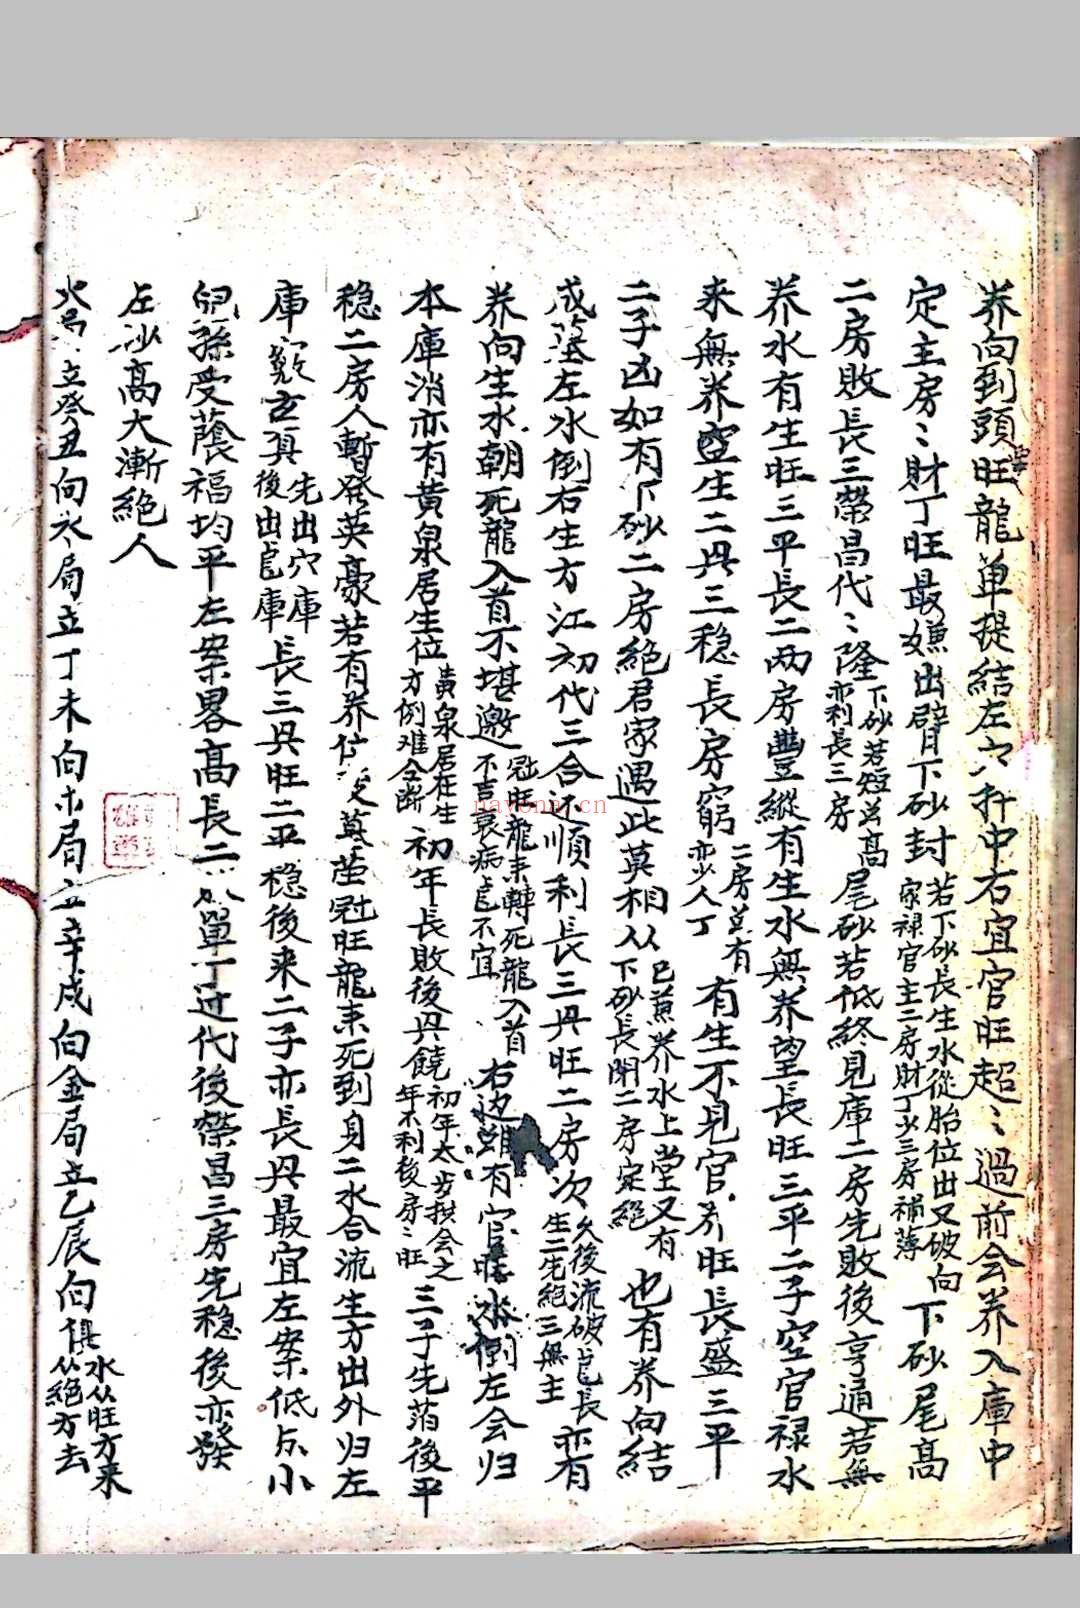 养向到頭旺龍单提結左六折中右宜官旺超〻過前会养入庫中
定主房〻財丁旺最嫌出臂下砂封若下砂長生水從胎位出又破向家禄官主二房財丁少三房補薄下砂尾高
二房敗長三榮昌代〻隆下砂若短並高亦利長三房尾砂若低終見庫二房先敗後亨通若無
养水有生旺三平長二两房豐縱有生水無养望長旺三平二子空官禄水
来無养空生二興三稳長房窮二房並有亦少人丁有生不見官养旺長盛三平
二子凶如有下砂二房絕君家遇此莫相从已兼养水上堂又有下砂長閉二房定絕也有养向結
成蓬左水倒右生方江初代三合边順利長三興旺二房次久後流破官長生二先絕三無主亦有
养向生水朝死龍入首不堪邀冠旺龍来轉死龍入首不吉衰病官不宜右边雖有官旺水倒左会归
本庫消亦有黃泉居生位黃泉居在生方例难全断初年長敗後興饒初年太步拱会之年不利後房〻旺三子先落後平
稳二房人暫發英豪若有养位莫茔冠旺龍来死到身二水合流生方出外归左
庫數玄真先出穴庫後出官庫長三興旺二平稳後来二子亦長興最宜左案低点小
兒孫受蔭福均平左案畧高長二單丁过代後榮昌三房先稳後亦發
左沙高大漸絕人
立癸丑向水局立丁未向木局立辛戍向金局立乙辰向俱水从旺方来从絕方去